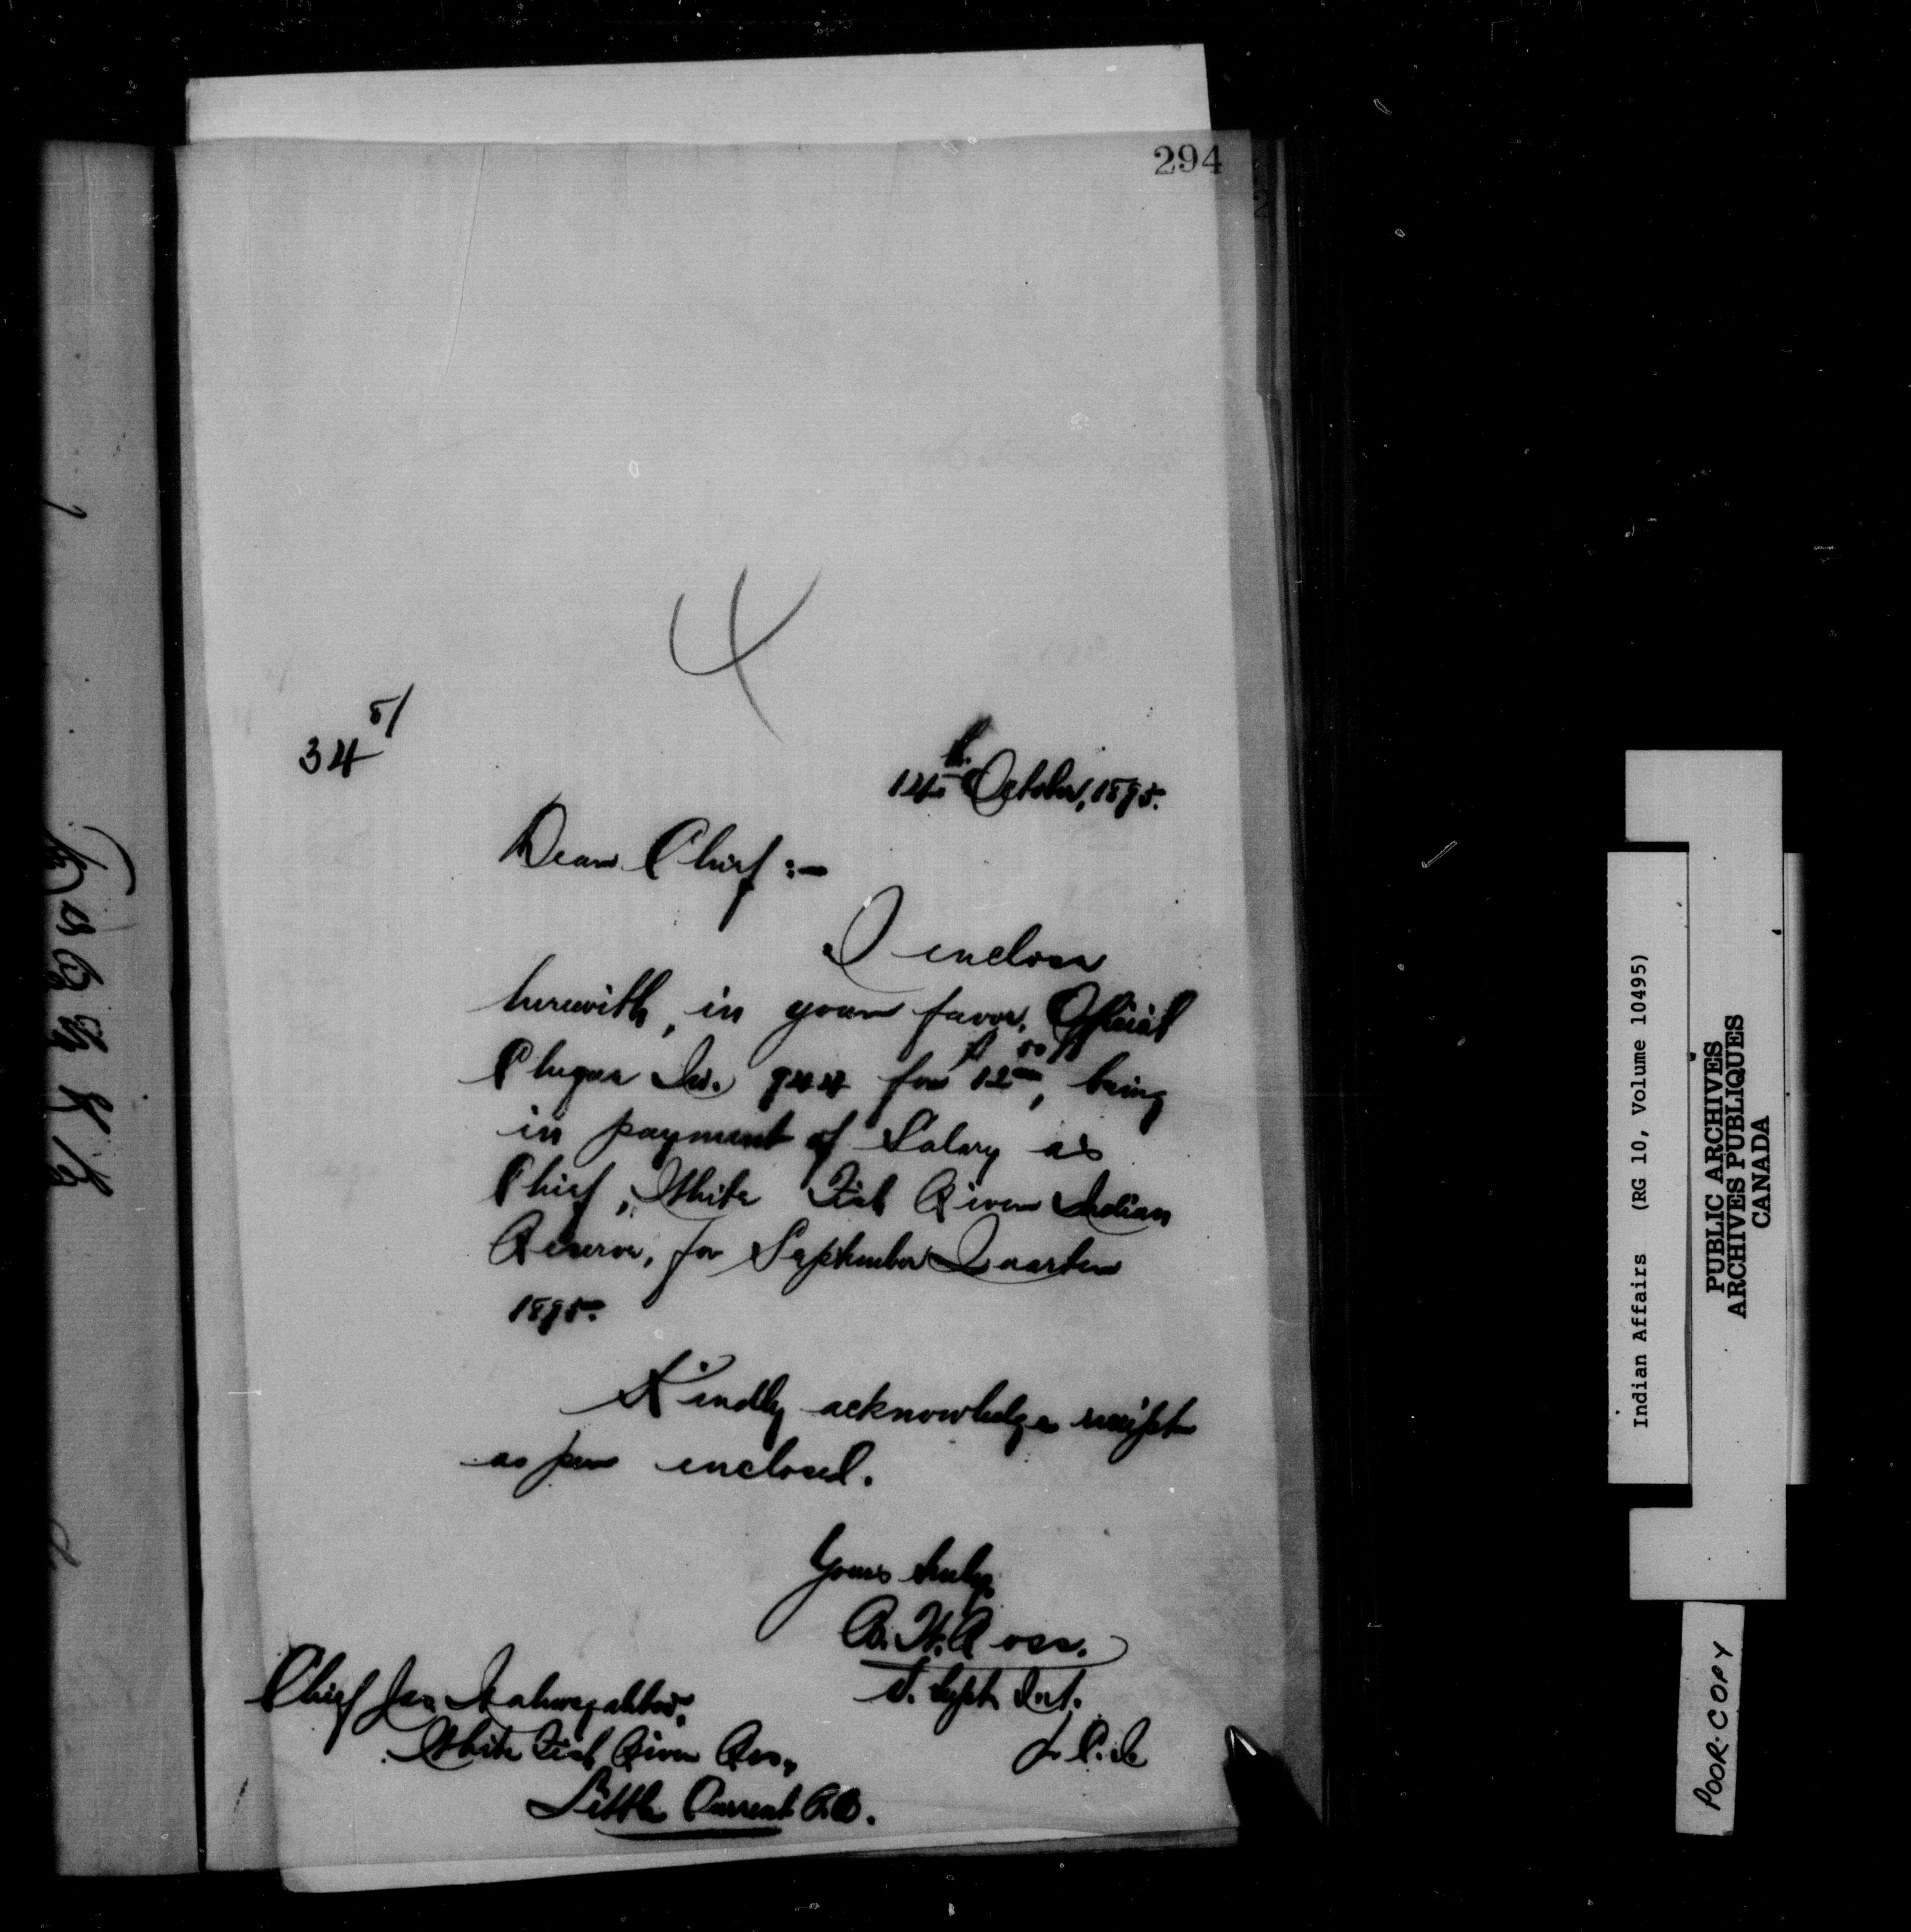 294
4
34 5/
14th October, 1895.
Dear Chief :-
I enclose
herewith, in your favor, Official
Cheque No. 944 for $12.00, being
in payment of Salary as
Chief, White Fish River Indian
Reserve, for September Quarter
1895.
Kindly acknowledge receipt
as per enclosed.
Yours truly,
B. W. Ross.
Chief Jas.
White Fish River Res.,
Little Current P.O.
Indian Affairs (RG 10, Volume 10495)
PUBLIC ARCHIVES
ARCHIVES PUBLIQUES
CANADA
POOR COPY